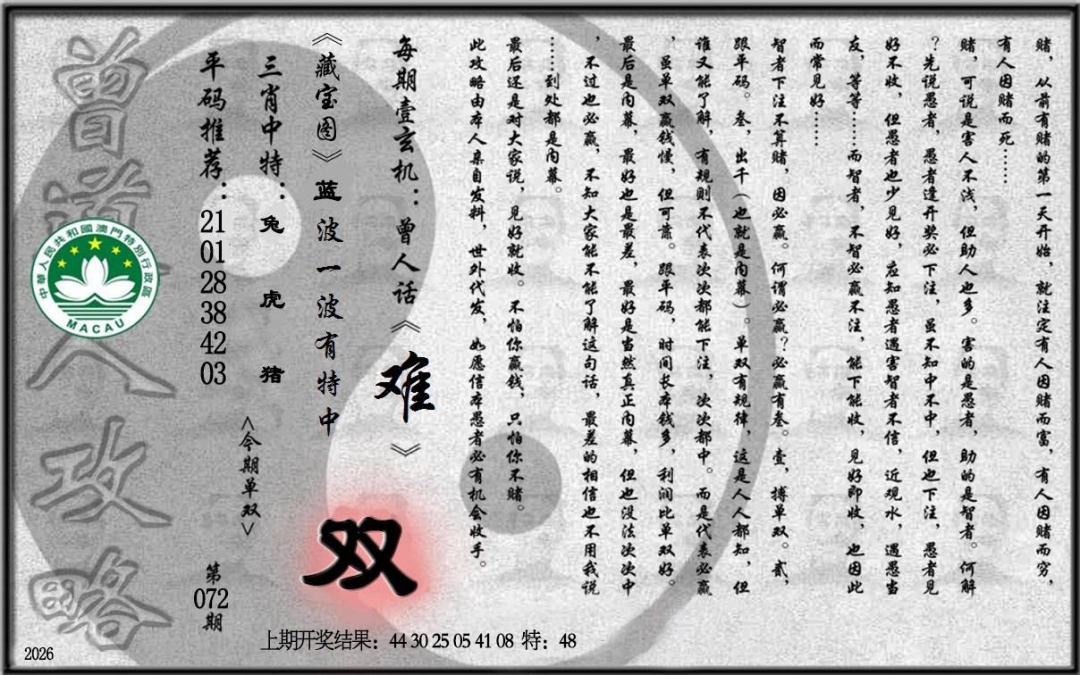 赌，从前有赌的第一天开始，就注定有人因赌而富，有人因赌而穷，
有人因赌而死……
赌，可说是害人不浅，但助人也多。害的是愚者，助的是智者。何解
？先说愚者，愚者逢开奖必下注，虽不知中不中，但也下注，愚者见
好不收，但愚者也少见好，应知愚者遇害智者不信，近观水，遇愚当
友，等等……而智者，不智必赢不注，能下能收，见好即收，也因此
而常见好……
智者下注不算赌，因必赢。何谓必赢？必赢有叁。壹，搏单双。贰，
跟平码。叁，出千（也就是内幕）。单双有规律，这是人人都知，但
谁又能了解，有规则不代表次次都能下注，次次都中。而是代表必赢
，虽单双赢钱慢，但可靠。跟平码，时间长本钱多，利润比单双好。
最后是内幕，最好也是最差，最好是当然真正内幕，但也没法次次中
，不过也必赢，不知大家能不能了解这句话，最差的相信也不用我说
……到处都是内幕。
最后还是对大家说，见好就收。不怕你赢钱，只怕你不赌。
此攻略由本人亲自发料，世外代发，如愿信本愚者必有机会收手。
每期壹玄机：曾人话《难》
《藏宝图》蓝波一波有特中
双
三肖中特：兔 虎 猪
<今期单双>
平码推荐：21 01 28 38 42 03
第072期
曾道人攻略
中華人民共和國澳門特別行政區
MACAU
上期开奖结果：44 30 25 05 41 08 特：48
2026